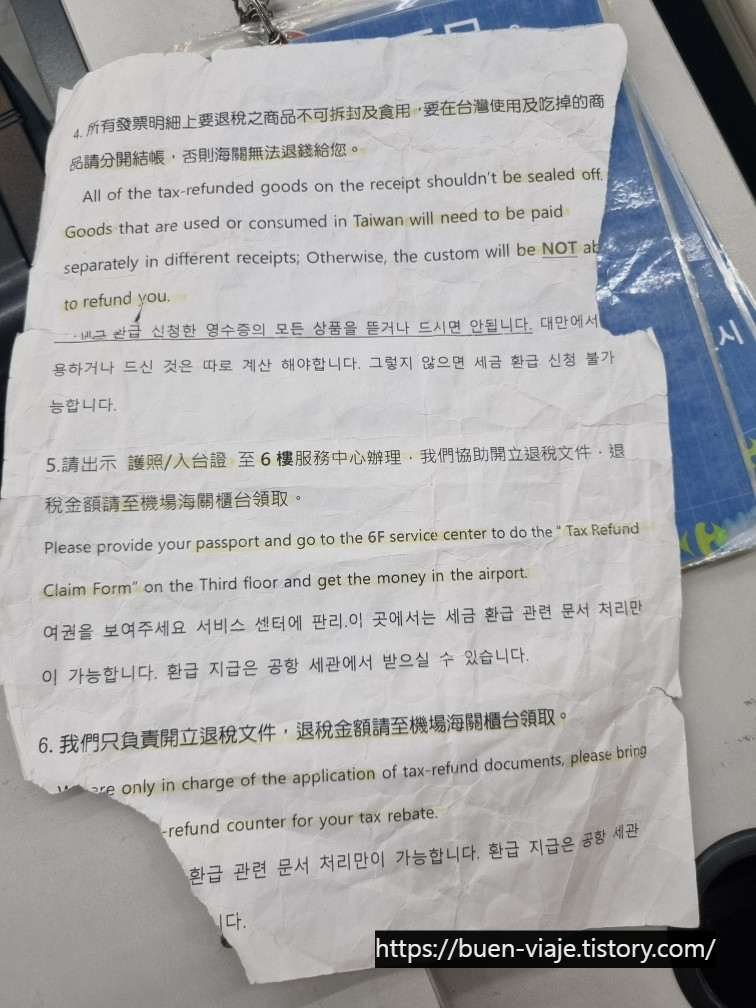 4. 所有發票明細上要退稅之商品不可拆封及食用，要在台灣使用及吃掉的商
品請分開結帳，否則海關無法退錢給您。
All of the tax-refunded goods on the receipt shouldn't be sealed off.
Goods that are used or consumed in Taiwan will need to be paid
separately in different receipts; Otherwise, the custom will be NOT ab
to refund you.
환급 신청한 영수증의 모든 상품을 뜯거나 드시면 안됩니다. 대만에서
용하거나 드신 것은 따로 계산 해야합니다. 그렇지 않으면 세금 환급 신청 불가
능합니다.
5.請出示 護照/入台證 至 6 樓服務中心辦理．我們協助開立退稅文件．退
稅金額請至機場海關櫃台領取。
Please provide your passport and go to the 6F service center to do the " Tax Refund
Claim Form" on the Third floor and get the money in the airport.
여권을 보여주세요 서비스 센터에 판리.이 곳에서는 세금 환급 관련 문서 처리만
이 가능합니다. 환급 지급은 공항 세관에서 받으실 수 있습니다.
6. 我們只負責開立退稅文件，退稅金額請至機場海關櫃台領取。
are only in charge of the application of tax-refund documents, please bring
-refund counter for your tax rebate.
환급 관련 문서 처리만이 가능합니다. 환급 지급은 공항 세관
니다.
시
https://buen-viaje.tistory.com/